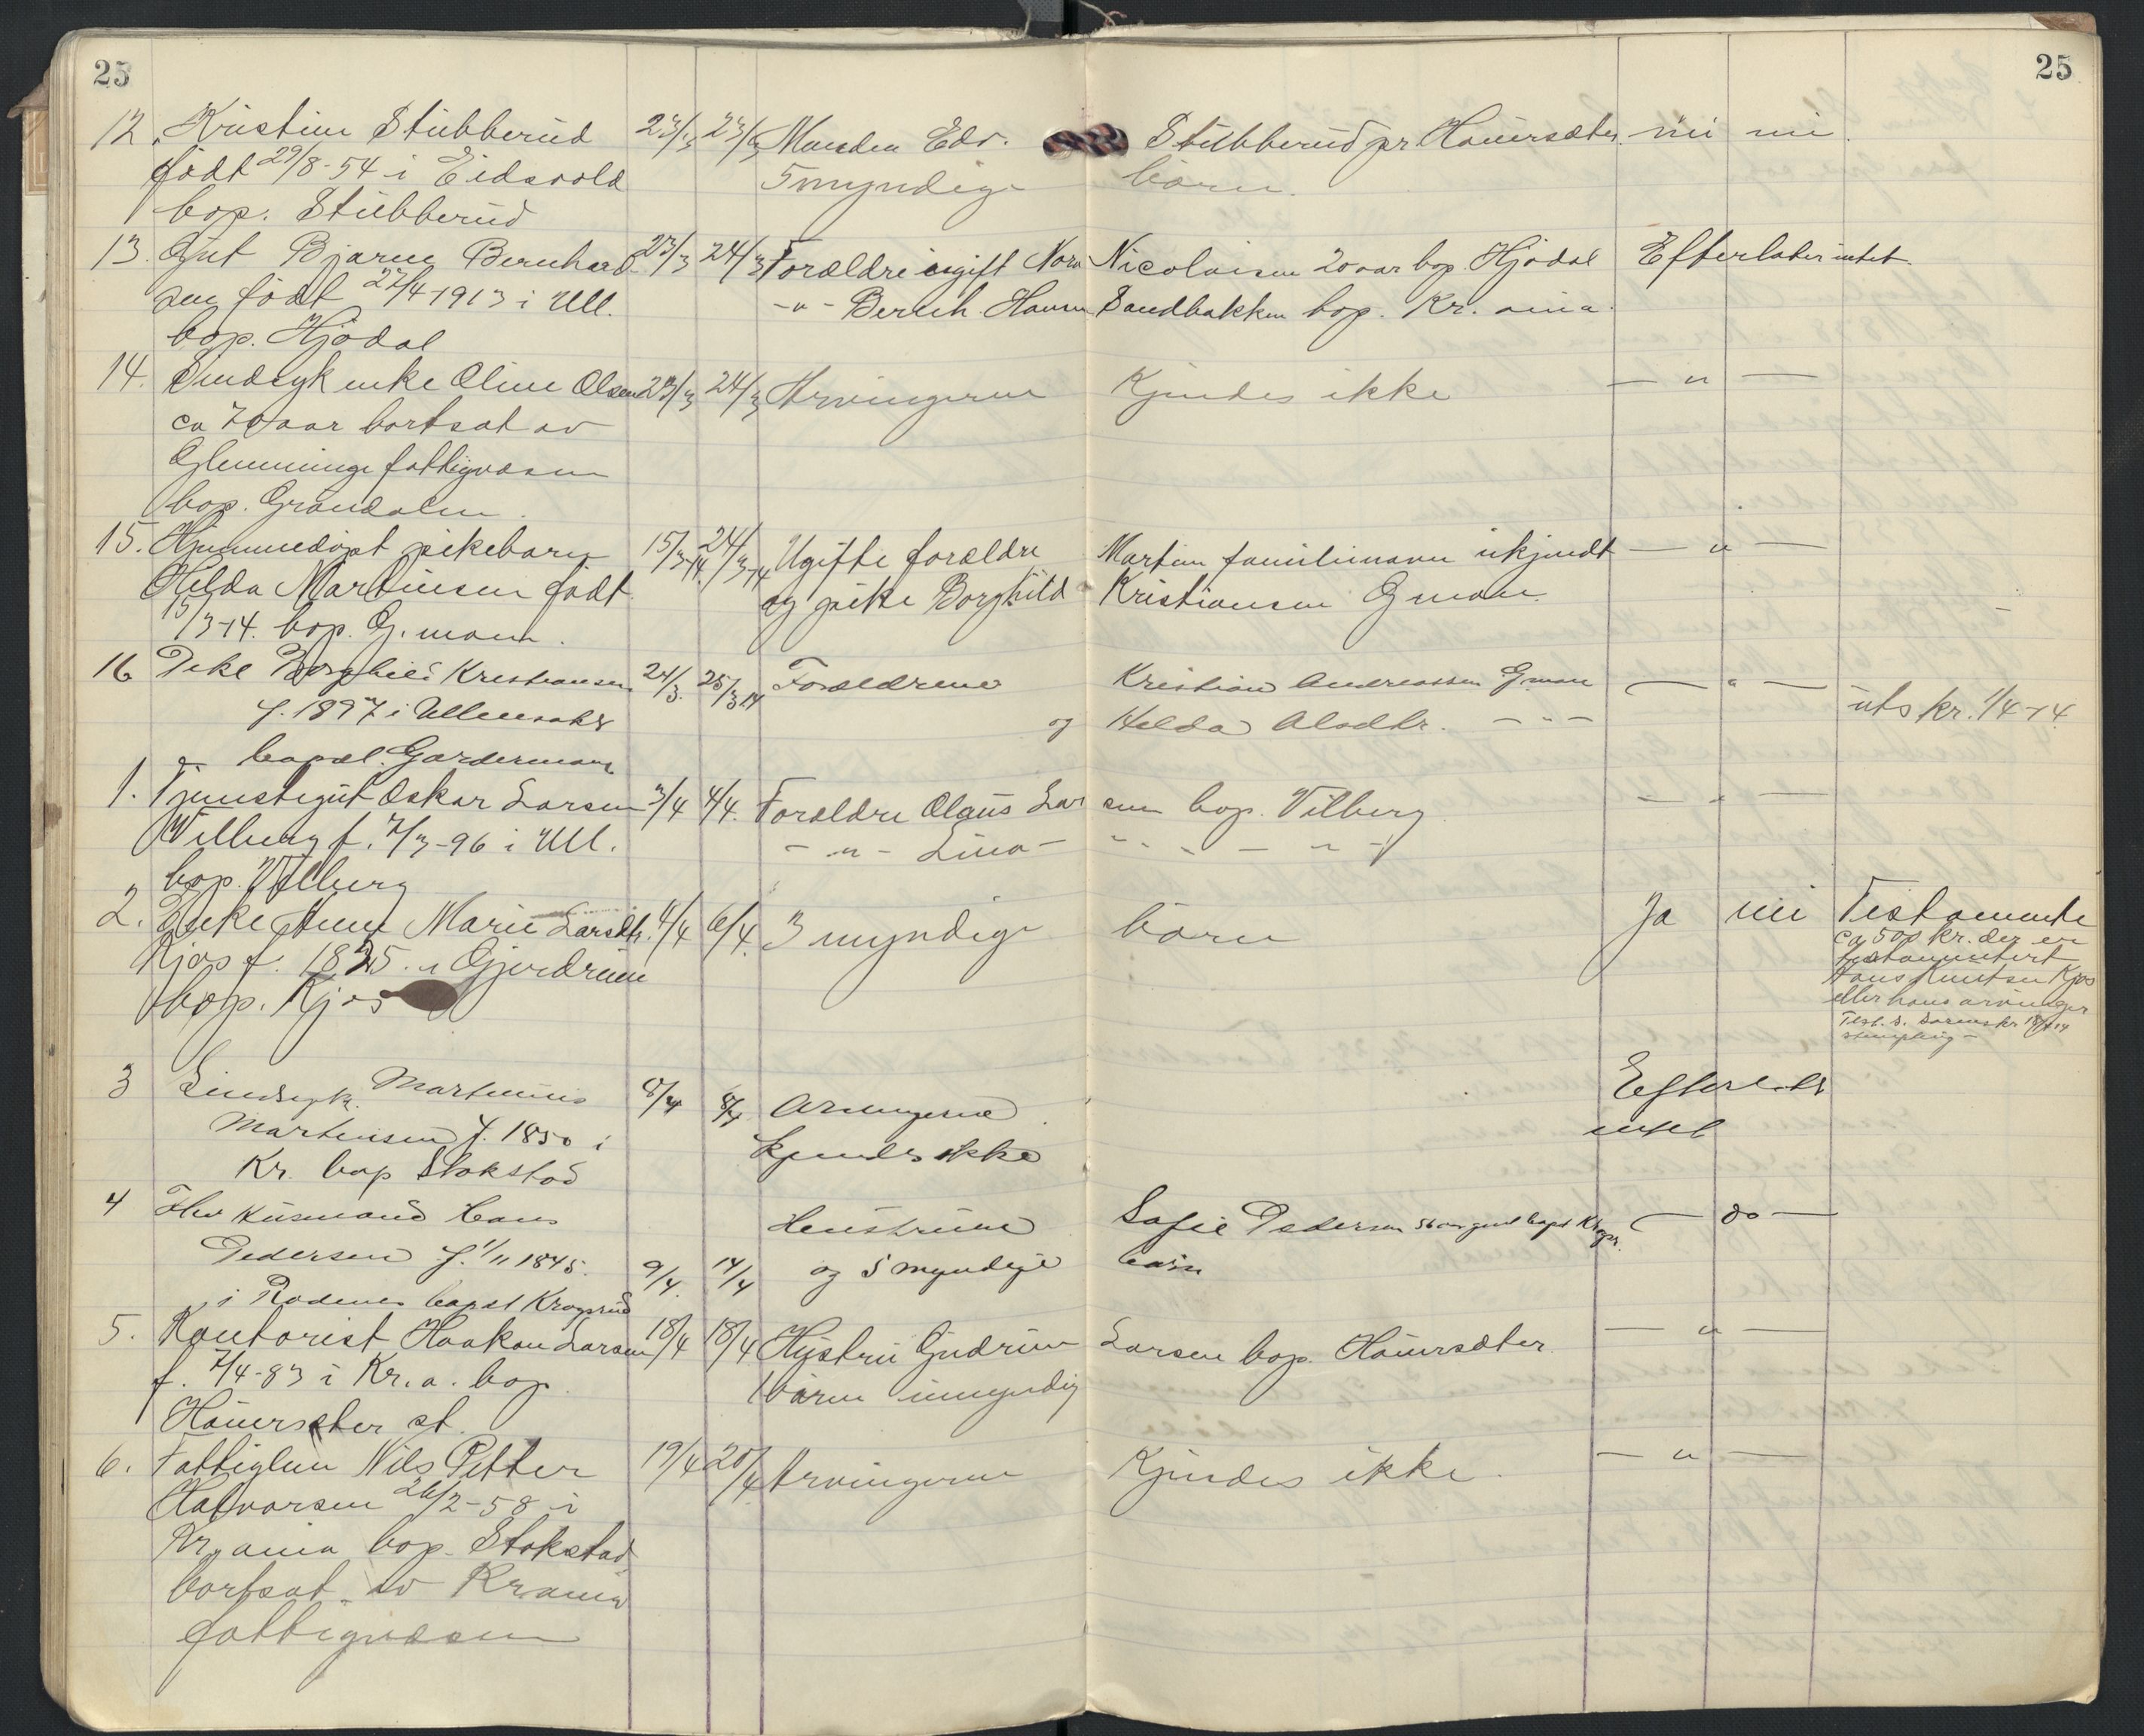 25 25
12. Kristine Stubberud 23/3 23/3 Manden Edv. Stubberud pr Hauersæter nei nei
født 29/8-54 i Eidsvold 5 myndige børn.
bop. Stubberud
13. Gut Bjarne Bernhard 23/3 24/3 Forældre ugift Nora Nicolaisen 20 aar bop. Hjødal Efterlater intet.
sen født 27/4 1913 i Ull. -"- Bernh. Hansen Sandbakken bop. Kr.ania.
bop. Hjødal
14. Sindsyk enke Oline Olsen 23/3 24/3 Arvingerne Kjendes ikke — " —
ca 70 aar bortsat av
Glemminge fattigvæsen
bop. Grøndalen.
15. Hjemmedøpt pikebarn 15/3-14 24/3-14 Ugifte forældre Martin familienavn ukjendt — " —
Helda Martinsen født og pike Borghild Kristiansen G.moen.
15/3-14. bop. G.moen.
16 Pike Borghild Kristiansen 24/3. 25/3 14 Forældrene Kristian Andreassen G.moen — " — uts kr. 1/4-14
f. 1897 i Ullensaker og Helda Olsdtr. - " -
bopæl. Gardermoen
1. Tjenestegut Oskar Larsen 3/4 4/4. Forældre Olaus Larsen bop. Vilberg — " —
Vilberg f. 7/3-96 i Ull. - " - Lina - - " -
bop. Vilberg
2. Enke Anne Marie Larsdtr. 4/4 6/4. 3 myndige børn Ja nei Testamente
Kjos f. 1825. i Gjerdrum ca 500 kr. der er
bop. Kjos testamentert
Hans Knutsen Kjos
eller hans arvinger
3 Sindsyk. Martinius 8/4 8/4 Arvingerne Efterlat
Martinsen f. 1850 i kjendes ikke intet
Kr. bop Stokstad
4 Fhv Husmand Hans Hustruen Sofie Pedersen — do —
Pedersen f. 1/11 1845. 9/4. 14/4 og 5 myndige børn
i Rødenes bopæl Krogsrud
5. Kontorist Haakon Larsen 18/4 18/4 Hustru Gudrun Larsen bop. Hauersæter — " —
f. 7/4-83 i Kr.a. bop. 1 barn umyndig
Hauersæter st.
6. Fattiglem Nils Petter 19/4 20/4 Arvingerne Kjendes ikke. — " —
Halvorsen 26/2-58 i
Kr.ania bop. Stokstad
bortsat av Kr.ania
fattigvæsen